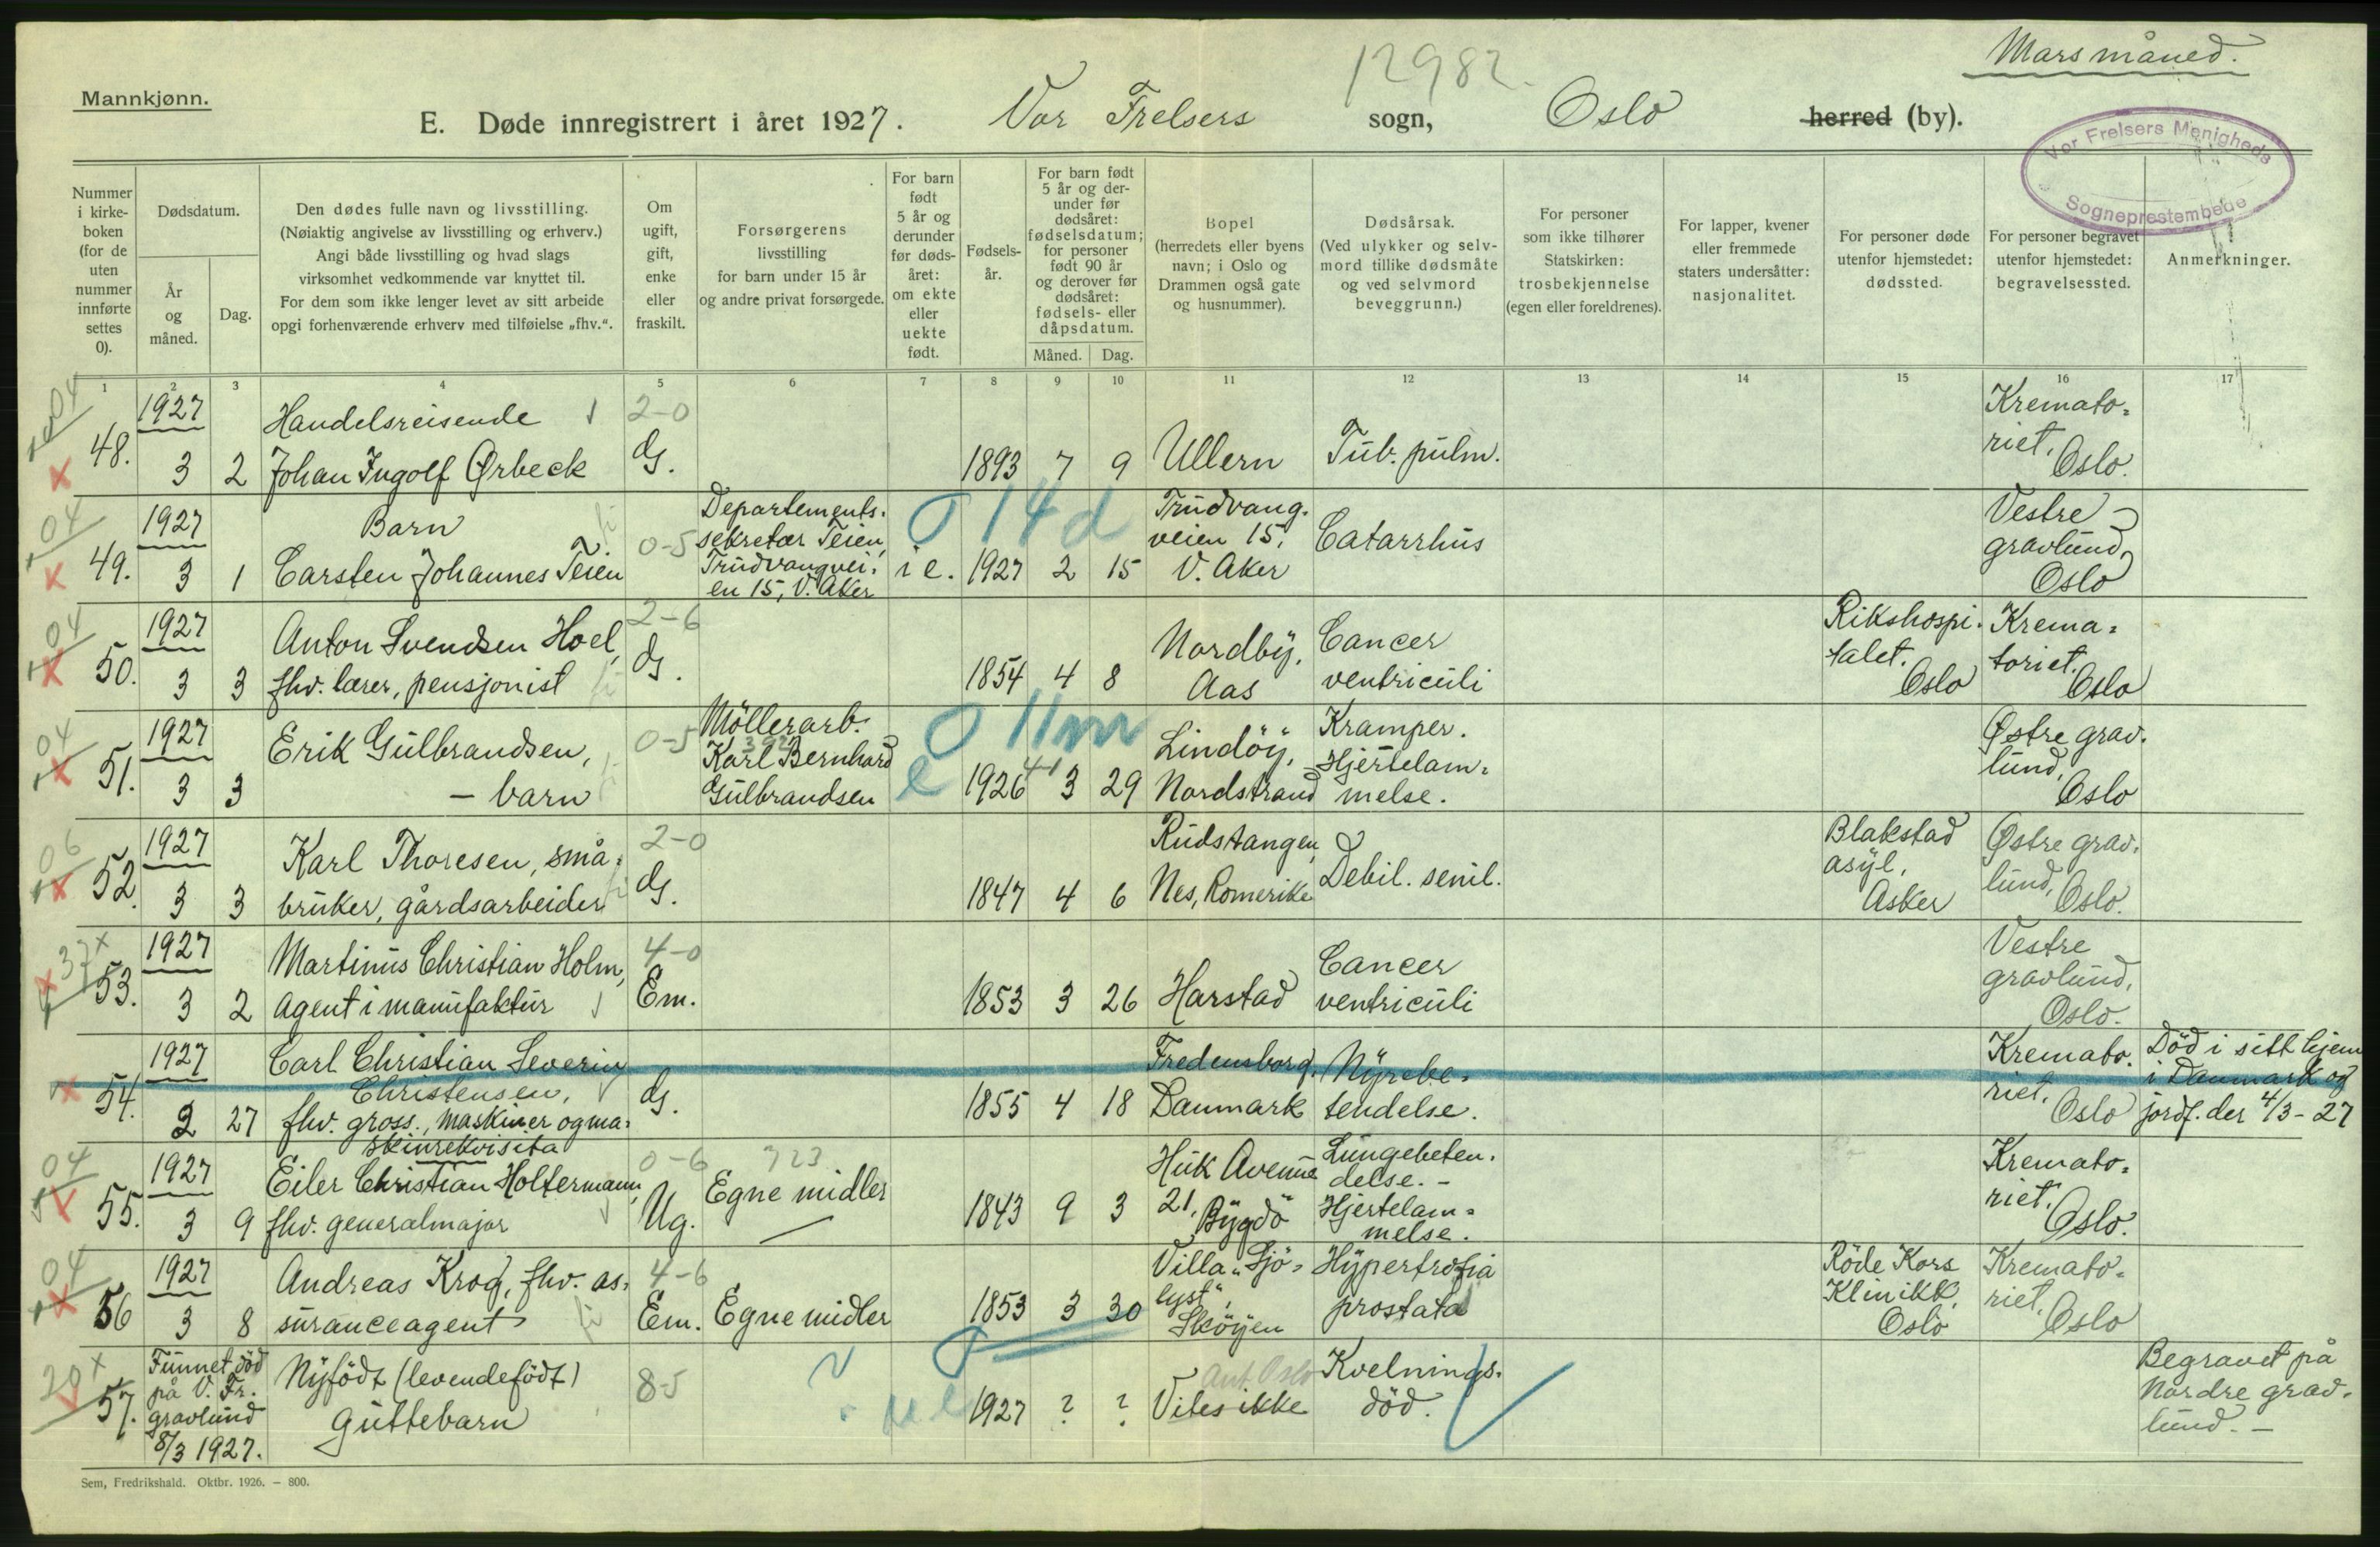 Mars måned.
12982.
Mannkjønn.
E. Døde innregistrert i året 1927. Vor Frelsers sogn, Oslo herred (by).
Vor Frelsers Menigheds
Sogneprestembede
Nummer i kirke-boken (for de uten nummer innførte settes 0).
Dødsdatum.
År og måned.
Dag.
Den dødes fulle navn og livsstilling.
(Nøiaktig angivelse av livsstilling og erhverv.)
Angi både livsstilling og hvad slags
virksomhet vedkommende var knyttet til.
For dem som ikke lenger levet av sitt arbeide
opgi forhenværende erhverv med tilføielse „fhv.“.
Om ugift, gift, enke eller fraskilt.
Forsørgerens
livsstilling
for barn under 15 år
og andre privat forsørgede.
For barn født 5 år og derunder før døds-året: om ekte eller uekte født.
Fødsels-år.
For barn født 5 år og der-under før dødsåret: fødselsdatum; for personer født 90 år og derover før dødsåret: fødsels- eller dåpsdatum.
Måned. Dag.
Bopel
(herredets eller byens
navn; i Oslo og
Drammen også gate
og husnummer).
Dødsårsak.
(Ved ulykker og selv-
mord tillike dødsmåte
og ved selvmord
beveggrunn.)
For personer
som ikke tilhører
Statskirken:
trosbekjennelse
(egen eller foreldrenes).
For lapper, kvener
eller fremmede
staters undersåtter:
nasjonalitet.
For personer døde
utenfor hjemstedet:
dødssted.
For personer begravet
utenfor hjemstedet:
begravelsessted.
Anmerkninger.
1 2 3 4 5 6 7 8 9 10 11 12 13 14 15 16 17
04
48.
1927
3 2
Handelsreisende
Johan Ingolf Ørbeck
2-0
G.
1893 7 9
Ullern
Tub. pulm.
Kremato=
riet,
Oslo.
04
49.
1927
3 1
Barn
Carsten Johannes Teien
0-5
Departements.
sekretær Teien,
Trudvangvei.
en 15, V. Aker
0 14 d
i e. 1927 2 15
Trudvang.
veien 15,
V. Aker
Catarrhus
Vestre
gravlund,
Oslo
04
50.
1927
3 3
Anton Svendsen Hoel,
fhv. lærer, pensjonist
2-6
G.
1854 4 8
Nordby,
Aas
Cancer
ventriculi
Rikshospi.
talet.
Oslo
Krema=
toriet,
Oslo
04
51.
1927
3 3
Erik Gulbrandsen,
- barn
0-5
Möllerarb.
Karl Bernhard
Gulbrandsen
0 11m
e 1926 3 29
Lindöy,
Nordstrand
Kramper.
Hjertelam=
melse.
Østre grav.
lund,
Oslo
06
52.
1927
3 3
Karl Thoresen, små=
bruker, gårdsarbeider
2-0
G.
1847 4 6
Rudstangen,
Nes, Romerike
Debil. senil.
Blakstad
asyl,
Asker
Østre grav.
lund,
Oslo.
37
53.
1927
3 2
Martinus Christian Holm,
agent i manufaktur
4-0
Em.
1853 3 26
Harstad
Cancer
ventriculi
Vestre
gravlund,
Oslo.
54.
1927
2 27
Carl Christian Severin
Christensen,
fhv. gross., maskiner og ma=
skinrekvisita
G.
1855 4 18
Fredensborg,
Danmark
Nyrebe=
tendelse.
Kremato.
riet,
Oslo
Död i sitt hjem
i Danmark og
jordf. der 4/3-27
04
55.
1927
3 9
Eiler Christian Holtermann,
fhv. generalmajor
0-6
Ug.
723
Egne midler
1843 9 3
Huk Avenue
21,
Bygdö
Lungebeten.
delse. -
Hjertelam=
melse.
Kremato=
riet,
Oslo.
04
56
1927
3 8
Andreas Krog, fhv. as=
suranceagent
4-6
Em.
Egne midler
1853 3 30
Villa „Sjö=
lyst“,
Sköyen
Hypertrofia
prostata
Röde Kors
Klinikk,
Oslo
Kremato=
riet,
Oslo
20
57.
Funnet död
på V. Fr.
gravlund
8/3 1927.
Nyfödt (levendefödt)
guttebarn
8-5
1927 ? ?
Ant. Oslo
Vites ikke
Kvelnings.
död.
Begravet på
Nordre grav.
lund. -
Sem, Fredrikshald. Oktbr. 1926. - 800.